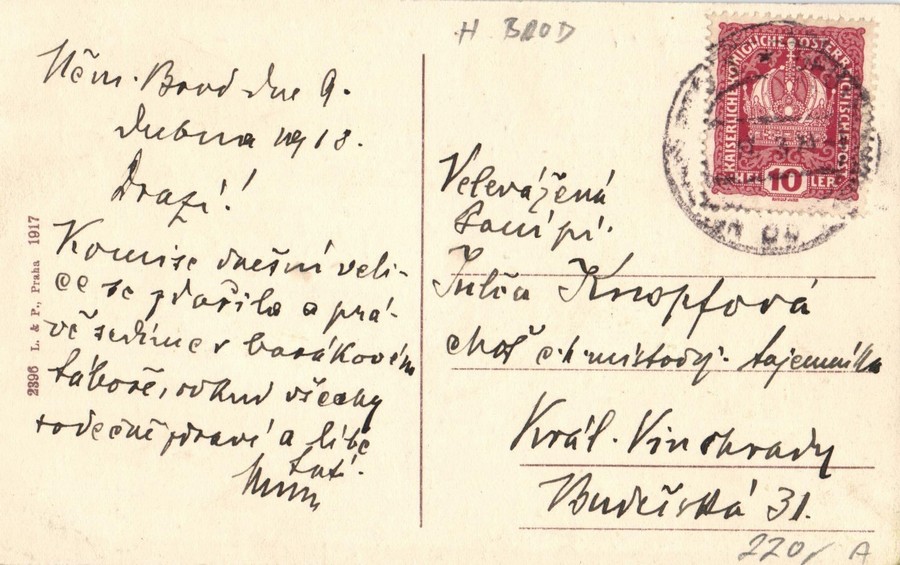 H BROD
Něm. Brod dne 9.
dubna 1918.
Drazí!
Komise dnešní veli-
ce se zdařila a prá-
vě sedíme v barákovém
táboře, odkud všechny
srdečně zdraví a líbá
tat.
2396 L. & P., Praha 1917
KAISERLICHE KÖNIGLICHE ÖSTERREICHISCHE POST
HELLER
10
Velevážená
Paní pí.
Julča Knopfová
choť c.k. místodrž. tajemníka
Král. Vinohrady
Budečská 31.
220,
A